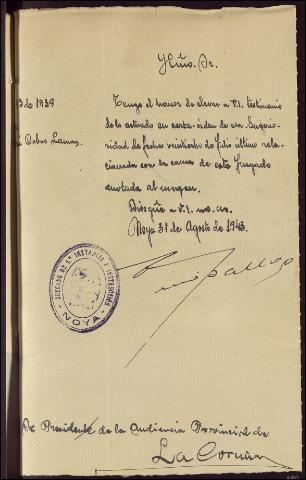 Yltmo. Sr.
3 de 1938
Cobas Lamas
Tengo el honor de elevar a V.I. testimonio
de lo actuado en carta-orden de esa Superio-
ridad de fecha veintiocho de Julio último rela-
cionada con la causa de este Juzgado
anotada al margen.
Dios gûe a V.I. ms. as.
Noya 31 de Agosto de 1943.
JUZGADO DE 1ª INSTANCIA E INSTRUCCION
NOYA
Presidente de la Audiencia Provincial de
La Coruña